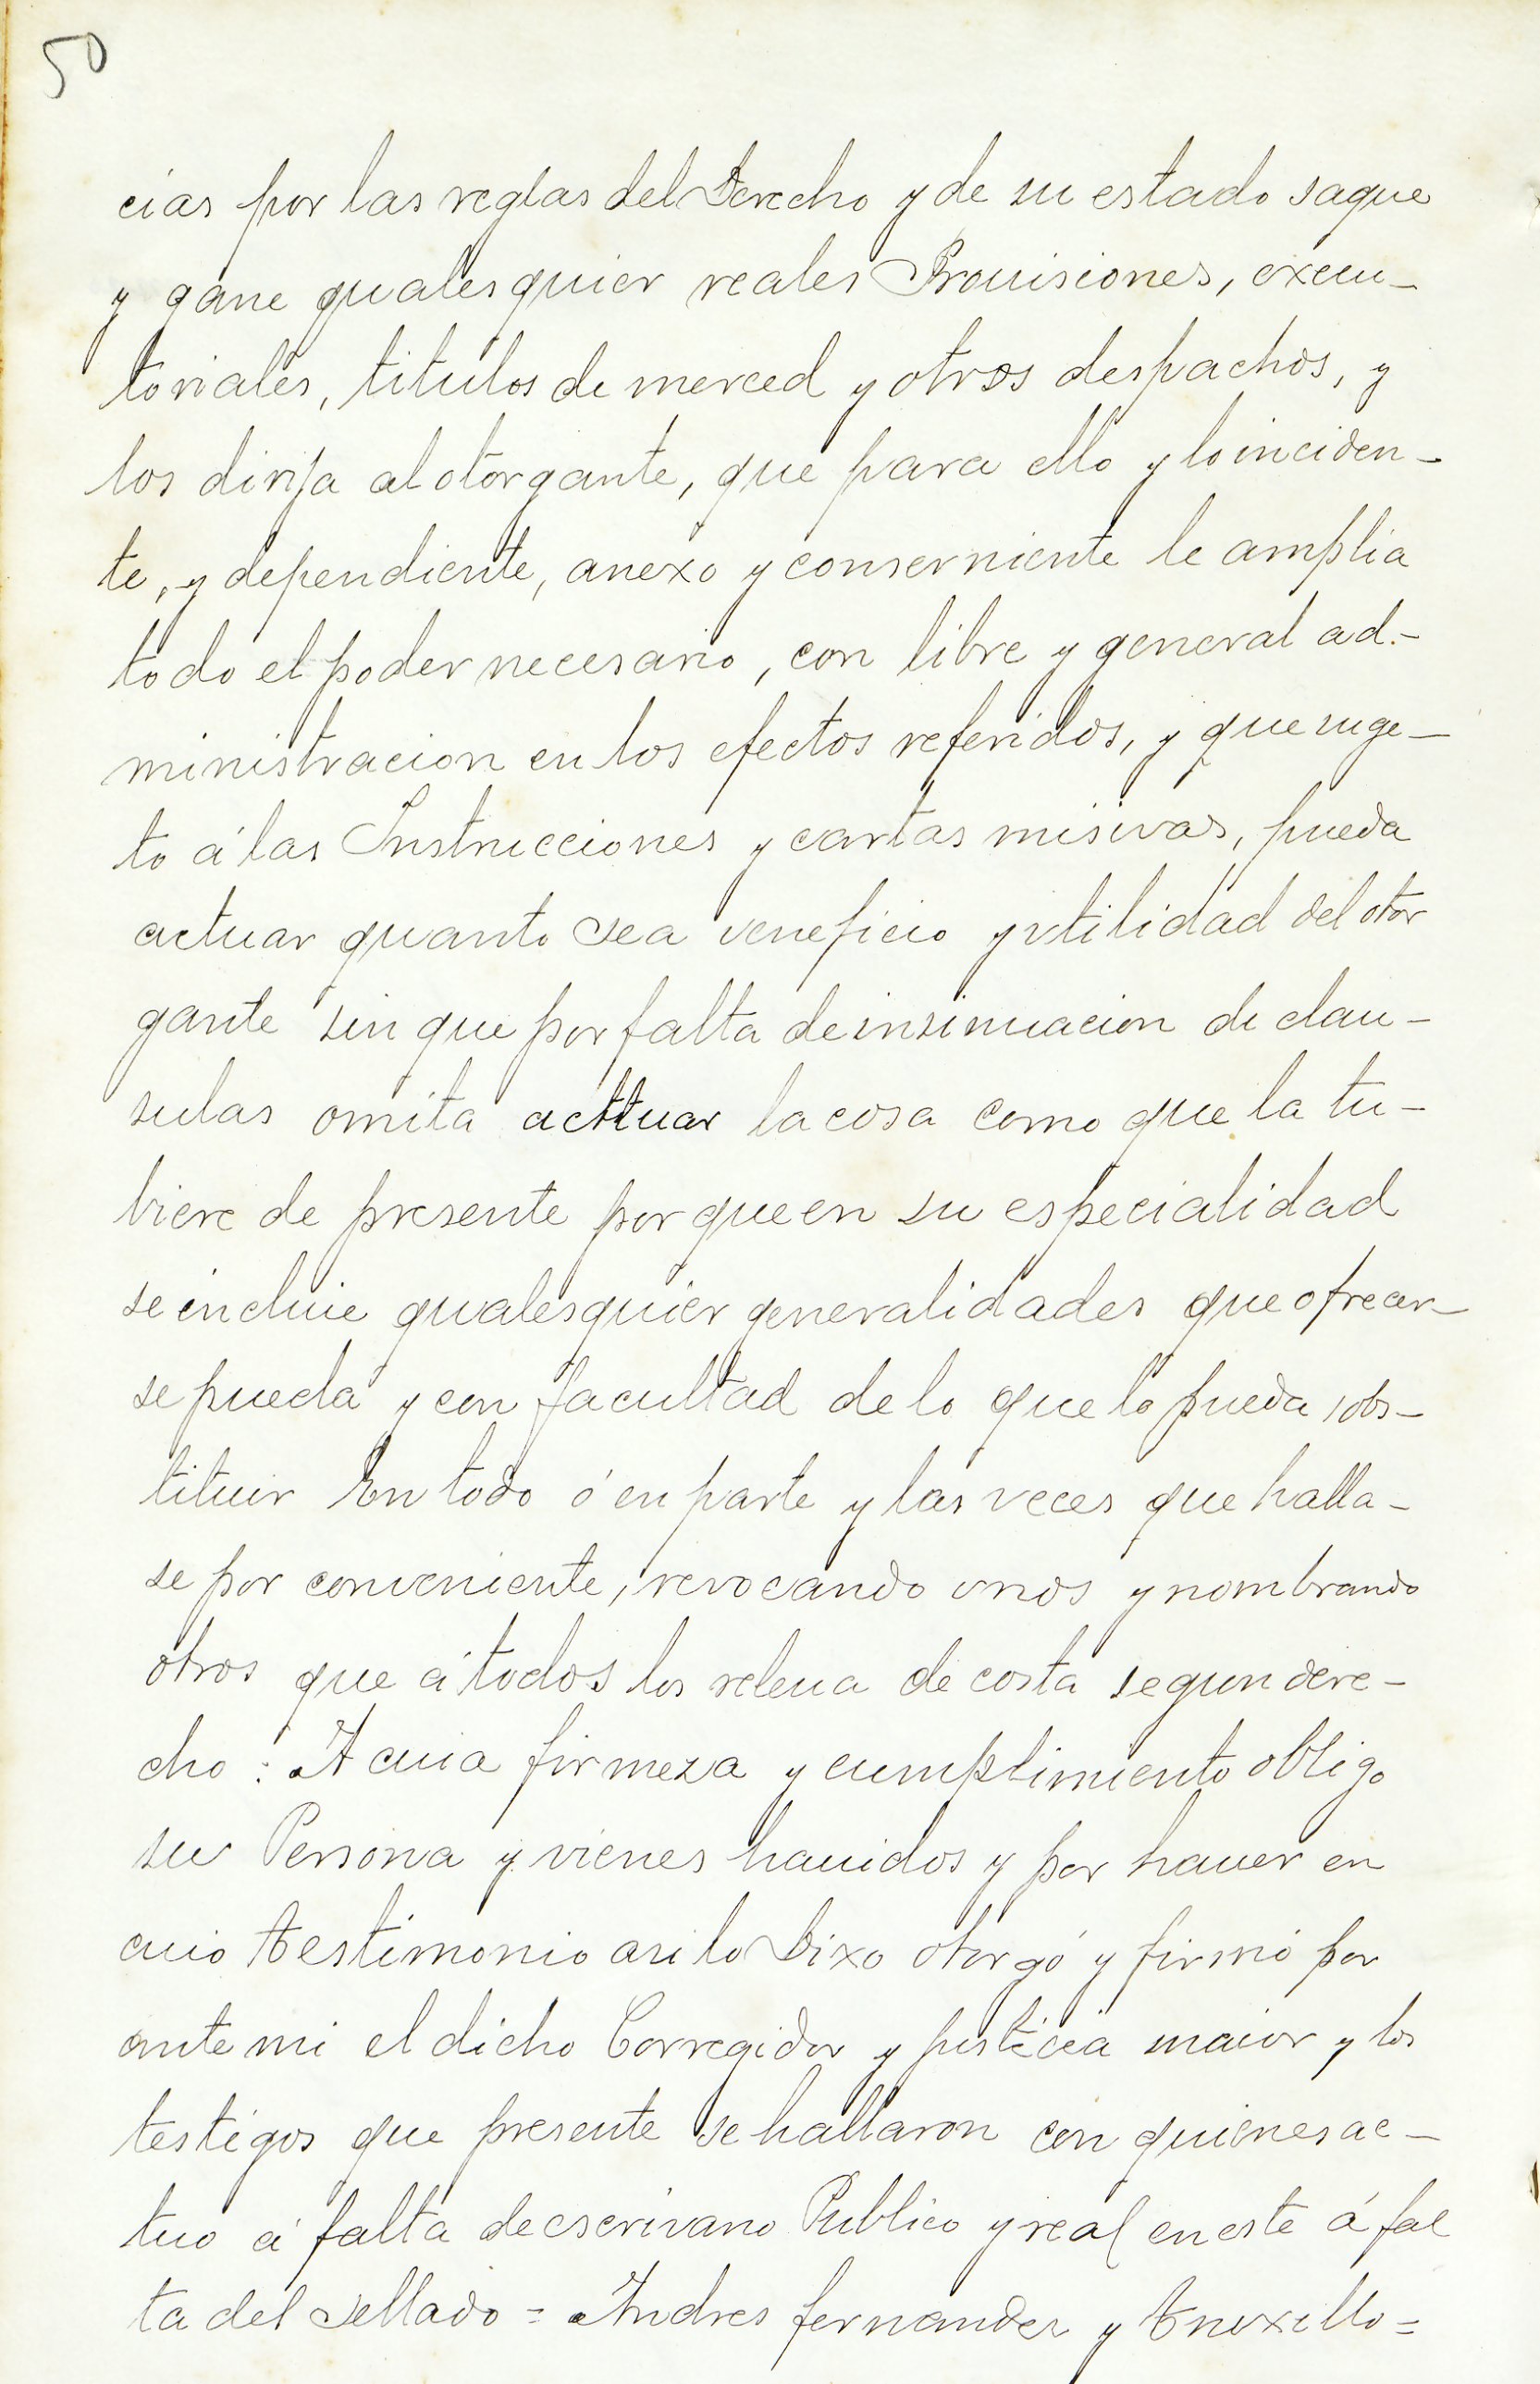 50
cias por las reglas del Derecho y de su estado saque
y gane qualesquier reales Prouisiones, execu-
toriales, titulos de merced y otros despachos, y
los dirija al otorgante, que para ello y lo inciden-
te, y dependiente, anexo y conserniente le amplia
todo el poder necesario, con libre y general ad-
ministracion en los efectos referidos, y que suge-
to á las Instrucciones y cartas misivas, pueda
actuar quanto sea veneficio y vtilidad del otor
gante sin que por falta de insinuacion de clau-
sulas omita acttuar la cosa como que la tu-
biere de presente por que en su especialidad
se incluie qualesquier generalidades que ofrecer-
se pueda y con facultad de lo que lo pueda sobs-
tituir En todo ó en parte y las veces que halla-
se por conveniente, revocando vnos y nombrando
otros que á todos los releua de costa segun dere-
cho: A cuia firmeza y cumplimiento obligo
su Persona y vienes hauidos y por hauer en
cuio testimonio asi lo Dixo otorgó y firmó por
ante mi el dicho Corregidor y justicia maior y los
testigos que presente se hallaron con quienes ac-
tuo á falta de escrivano Publico y real en este á fal
ta del sellado = Andres fernandez y Truxillo =